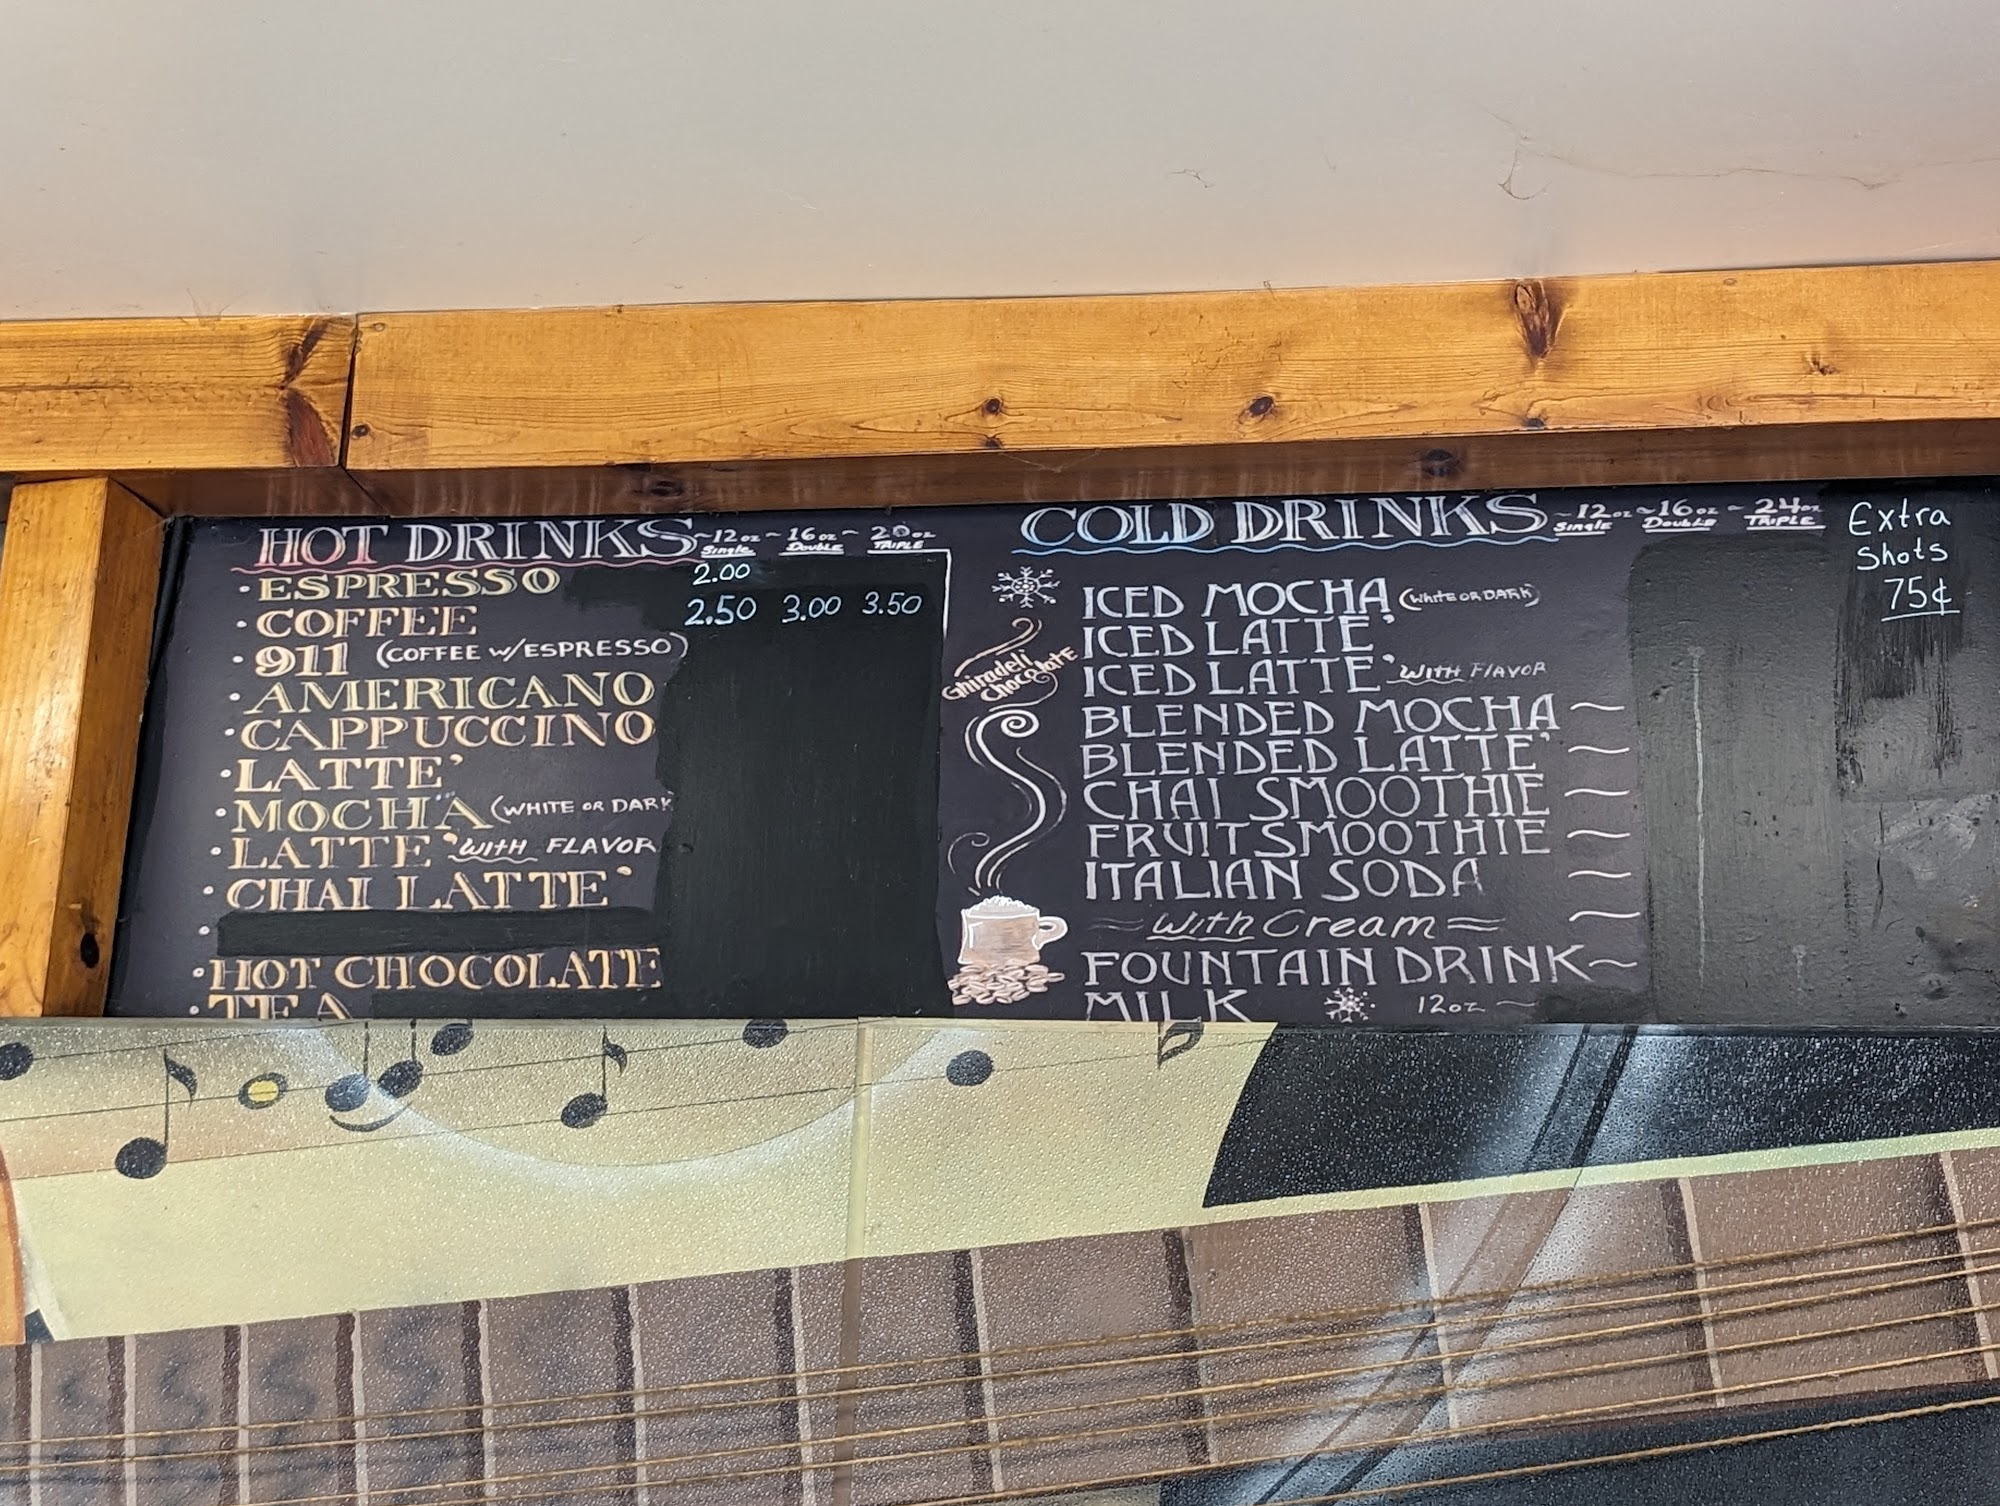 HOT DRINKS ~12oz ~ 16oz ~ 20oz
Single Double TRIPLE
• ESPRESSO 2.00
• COFFEE 2.50 3.00 3.50
• 911 (COFFEE w/ESPRESSO)
• AMERICANO
• CAPPUCCINO
• LATTE'
• MOCHA (WHITE OR DARK
• LATTE' WITH FLAVOR
• CHAI LATTE'
• HOT CHOCOLATE
• TEA
Ghiradeli
Chocolate
COLD DRINKS ~12oz ~ 16oz ~ 24oz
Single Double TRIPLE
ICED MOCHA (WHITE OR DARK)
ICED LATTE'
ICED LATTE' WITH FLAVOR
BLENDED MOCHA ~
BLENDED LATTE' ~
CHAI SMOOTHIE ~
FRUIT SMOOTHIE ~
ITALIAN SODA ~
With Cream ~
FOUNTAIN DRINK ~
MILK 12oz ~
Extra
Shots
75¢